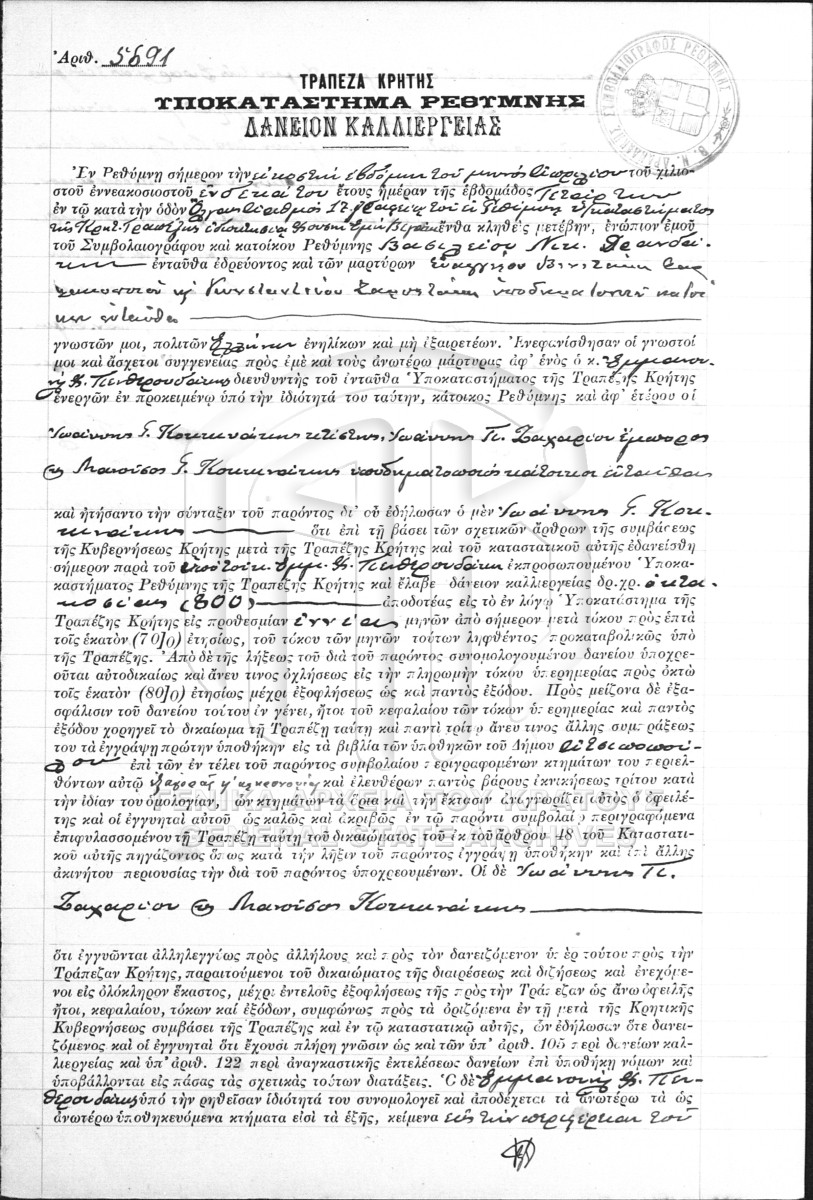 Ἀριθ. 5691
ΣΥΜΒΟΛΑΙΟΓΡΑΦΟΣ ΡΕΘΥΜΝΗΣ
ΤΡΑΠΕΖΑ ΚΡΗΤΗΣ
ΥΠΟΚΑΤΑΣΤΗΜΑ ΡΕΘΥΜΝΗΣ
ΔΑΝΕΙΟΝ ΚΑΛΛΙΕΡΓΕΙΑΣ
Ἐν Ρεθύμνῃ σήμερον τὴν εἰκοστὴν ἑβδόμην τοῦ μηνὸς τοῦ χιλιο-
στοῦ ἐννεακοσιοστοῦ ἑνδεκάτου ἔτους ἡμέραν τῆς ἑβδομάδος Τετάρτην
ἐν τῷ κατὰ τὴν ὁδὸν ἀριθμὸς 17 γραφείῳ τοῦ ἐν Ρεθύμνῃ Ὑποκαταστήματος
τῆς Κρητ. Τραπέζης ἰδιοκτησίας ἔνθα κληθεὶς μετέβην, ἐνώπιον ἐμοῦ
τοῦ Συμβολαιογράφου καὶ κατοίκου Ρεθύμνης Βασιλείου Νικ.
ἐνταῦθα ἑδρεύοντος καὶ τῶν μαρτύρων Εὐαγγέλου
καὶ Κωνσταντίνου ὑποδηματοποιοῦ κατοί-
κων ἐνταῦθα
γνωστῶν μοι, πολιτῶν Ἑλλήνων ἐνηλίκων καὶ μὴ ἐξαιρετέων. Ἐνεφανίσθησαν οἱ γνωστοί
μοι καὶ ἄσχετοι συγγενείας πρὸς ἐμὲ καὶ τοὺς ἀνωτέρω μάρτυρας ἀφ' ἑνὸς ὁ κ. Ἐμμανου-
ὴλ Σ. Πενθερουδάκης διευθυντὴς τοῦ ἐνταῦθα Ὑποκαταστήματος τῆς Τραπέζης Κρήτης
ἐνεργῶν ἐν προκειμένῳ ὑπὸ τὴν ἰδιότητά του ταύτην, κάτοικος Ρεθύμνης καὶ ἀφ' ἑτέρου οἱ
Ἰωάννης Γ. Κουκινάκης κτίστης, Ἰωάννης Π. Ζαχαρίου ἔμπορος
καὶ Μανοῦσος Γ. Κουκινάκης ὑποδηματοποιὸς κάτοικοι ἐνταῦθα
καὶ ᾐτήσαντο τὴν σύνταξιν τοῦ παρόντος δι' οὗ ἐδήλωσαν ὁ μὲν Ἰωάννης Γ. Κου-
κινάκης ὅτι ἐπὶ τῇ βάσει τῶν σχετικῶν ἄρθρων τῆς συμβάσεως
τῆς Κυβερνήσεως Κρήτης μετὰ τῆς Τραπέζης Κρήτης καὶ τοῦ καταστατικοῦ αὐτῆς ἐδανείσθη
σήμερον παρὰ τοῦ ὑπὸ τοῦ κ. Ἐμμ. Σ. Πενθερουδάκη ἐκπροσωπουμένου Ὑποκα-
καστήματος Ρεθύμνης τῆς Τραπέζης Κρήτης καὶ ἔλαβε δάνειον καλλιεργείας δρ. χρ. ὀκτα-
κοσίας (800) ἀποδοτέας εἰς τὸ ἐν λόγῳ Ὑποκατάστημα τῆς
Τραπέζης Κρήτης εἰς προθεσμίαν ἐννέα μηνῶν ἀπὸ σήμερον μετὰ τόκου πρὸς ἑπτὰ
τοῖς ἑκατὸν (7 0]0) ἐτησίως, τοῦ τόκου τῶν μηνῶν τούτων ληφθέντος προκαταβολικῶς ὑπὸ
τῆς Τραπέζης. Ἀπὸ δὲ τῆς λήξεως τοῦ διὰ τοῦ παρόντος συνομολογουμένου δανείου ὑποχρε-
οῦται αὐτοδικαίως καὶ ἄνευ τινος ὀχλήσεως εἰς τὴν πληρωμὴν τόκου ὑπερημερίας πρὸς ὀκτὼ
τοῖς ἑκατὸν (8 0]0) ἐτησίως μέχρι ἐξοφλήσεως ὡς καὶ παντὸς ἐξόδου. Πρὸς μείζονα δὲ ἐξα-
σφάλισιν τοῦ δανείου τούτου ἐν γένει, ἤτοι τοῦ κεφαλαίου τῶν τόκων ὑπερημερίας καὶ παντὸς
ἐξόδου χορηγεῖ τὸ δικαίωμα τῇ Τραπέζῃ ταύτῃ καὶ παντὶ τρίτῳ ἄνευ τινος ἄλλης συμπράξεως
του τὰ ἐγγράψῃ πρώτην ὑποθήκην εἰς τὰ βιβλία τῶν ὑποθηκῶν τοῦ Δήμου
ἐπὶ τῶν ἐν τέλει τοῦ παρόντος συμβολαίου περιγραφομένων κτημάτων του περιελ-
θόντων αὐτῷ ἐξ ἀγορᾶς καὶ κληρονομίας καὶ ἐλευθέρων παντὸς βάρους ἐκνικήσεως τρίτου κατὰ
τὴν ἰδίαν του ὁμολογίαν, ὧν κτημάτων τὰ ὅρια καὶ τὴν ἔκτασιν ἀναγνωρίζει αὐτὸς ὁ ὀφειλέ-
της καὶ οἱ ἐγγυηταὶ αὐτοῦ ὡς καλῶς καὶ ἀκριβῶς ἐν τῷ παρόντι συμβολαίῳ περιγραφόμενα
ἐπιφυλασσομένου τῇ Τραπέζῃ ταύτῃ τοῦ δικαιώματος τοῦ ἐκ τοῦ ἄρθρου 48 τοῦ Καταστατι-
κοῦ αὐτῆς πηγάζοντος ὅπως κατὰ τὴν λῆξιν τοῦ παρόντος ἐγγράψῃ ὑποθήκην καὶ ἐπὶ ἄλλης
ἀκινήτου περιουσίας τὴν διὰ τοῦ παρόντος ὑποχρεουμένων. Οἱ δὲ Ἰωάννης Π.
Ζαχαρίου καὶ Μανοῦσος Κουκινάκης
ὅτι ἐγγυῶνται ἀλληλεγγύως πρὸς ἀλλήλους καὶ πρὸς τὸν δανειζόμενον ὑπὲρ τούτου πρὸς τὴν
Τράπεζαν Κρήτης, παραιτούμενοι τοῦ δικαιώματος τῆς διαιρέσεως καὶ διζήσεως καὶ ἐνεχόμε-
νοι εἰς ὁλόκληρον ἕκαστος, μέχρι ἐντελοῦς ἐξοφλήσεως τῆς πρὸς τὴν Τράπεζαν ὡς ἄνω ὀφειλῆς
ἤτοι, κεφαλαίου, τόκων καὶ ἐξόδων, συμφώνως πρὸς τὰ ὁριζόμενα ἐν τῇ μετὰ τῆς Κρητικῆς
Κυβερνήσεως συμβάσει τῆς Τραπέζης καὶ ἐν τῷ καταστατικῷ αὐτῆς, ὧν ἐδήλωσαν ὅτε δανει-
ζόμενος καὶ οἱ ἐγγυηταὶ ὅτι ἔχουσι πλήρη γνῶσιν ὡς καὶ τῶν ὑπ' ἀριθ. 105 περὶ δανείων καλ-
λιεργείας καὶ ὑπ' ἀριθ. 122 περὶ ἀναγκαστικῆς ἐκτελέσεως δανείων ἐπὶ ὑποθήκῃ νόμων καὶ
ὑποβάλλονται εἰς πάσας τὰς σχετικὰς τούτων διατάξεις. Ὁ δὲ Ἐμμανουὴλ Σ. Πεν-
θερουδάκης ὑπὸ τὴν ῥηθεῖσαν ἰδιότητά του συνομολογεῖ καὶ ἀποδέχεται τὰ ἀνωτέρω τὰ ὡς
ἀνωτέρω ὑποθηκευόμενα κτήματα εἰσὶ τὰ ἑξῆς, κείμενα εἰς τὴν περιφέρειαν τοῦ
ΓΕΝΙΚΑ ΑΡΧΕΙΑ ΤΟΥ ΚΡΑΤΟΥΣ
GENERAL STATE ARCHIVES